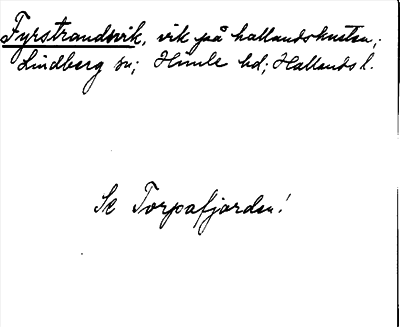 Fyrstrandsvik, vik på hallandskusten;
Lindberg sn; Himle hd; Hallands l.
Se Torpafjorden!